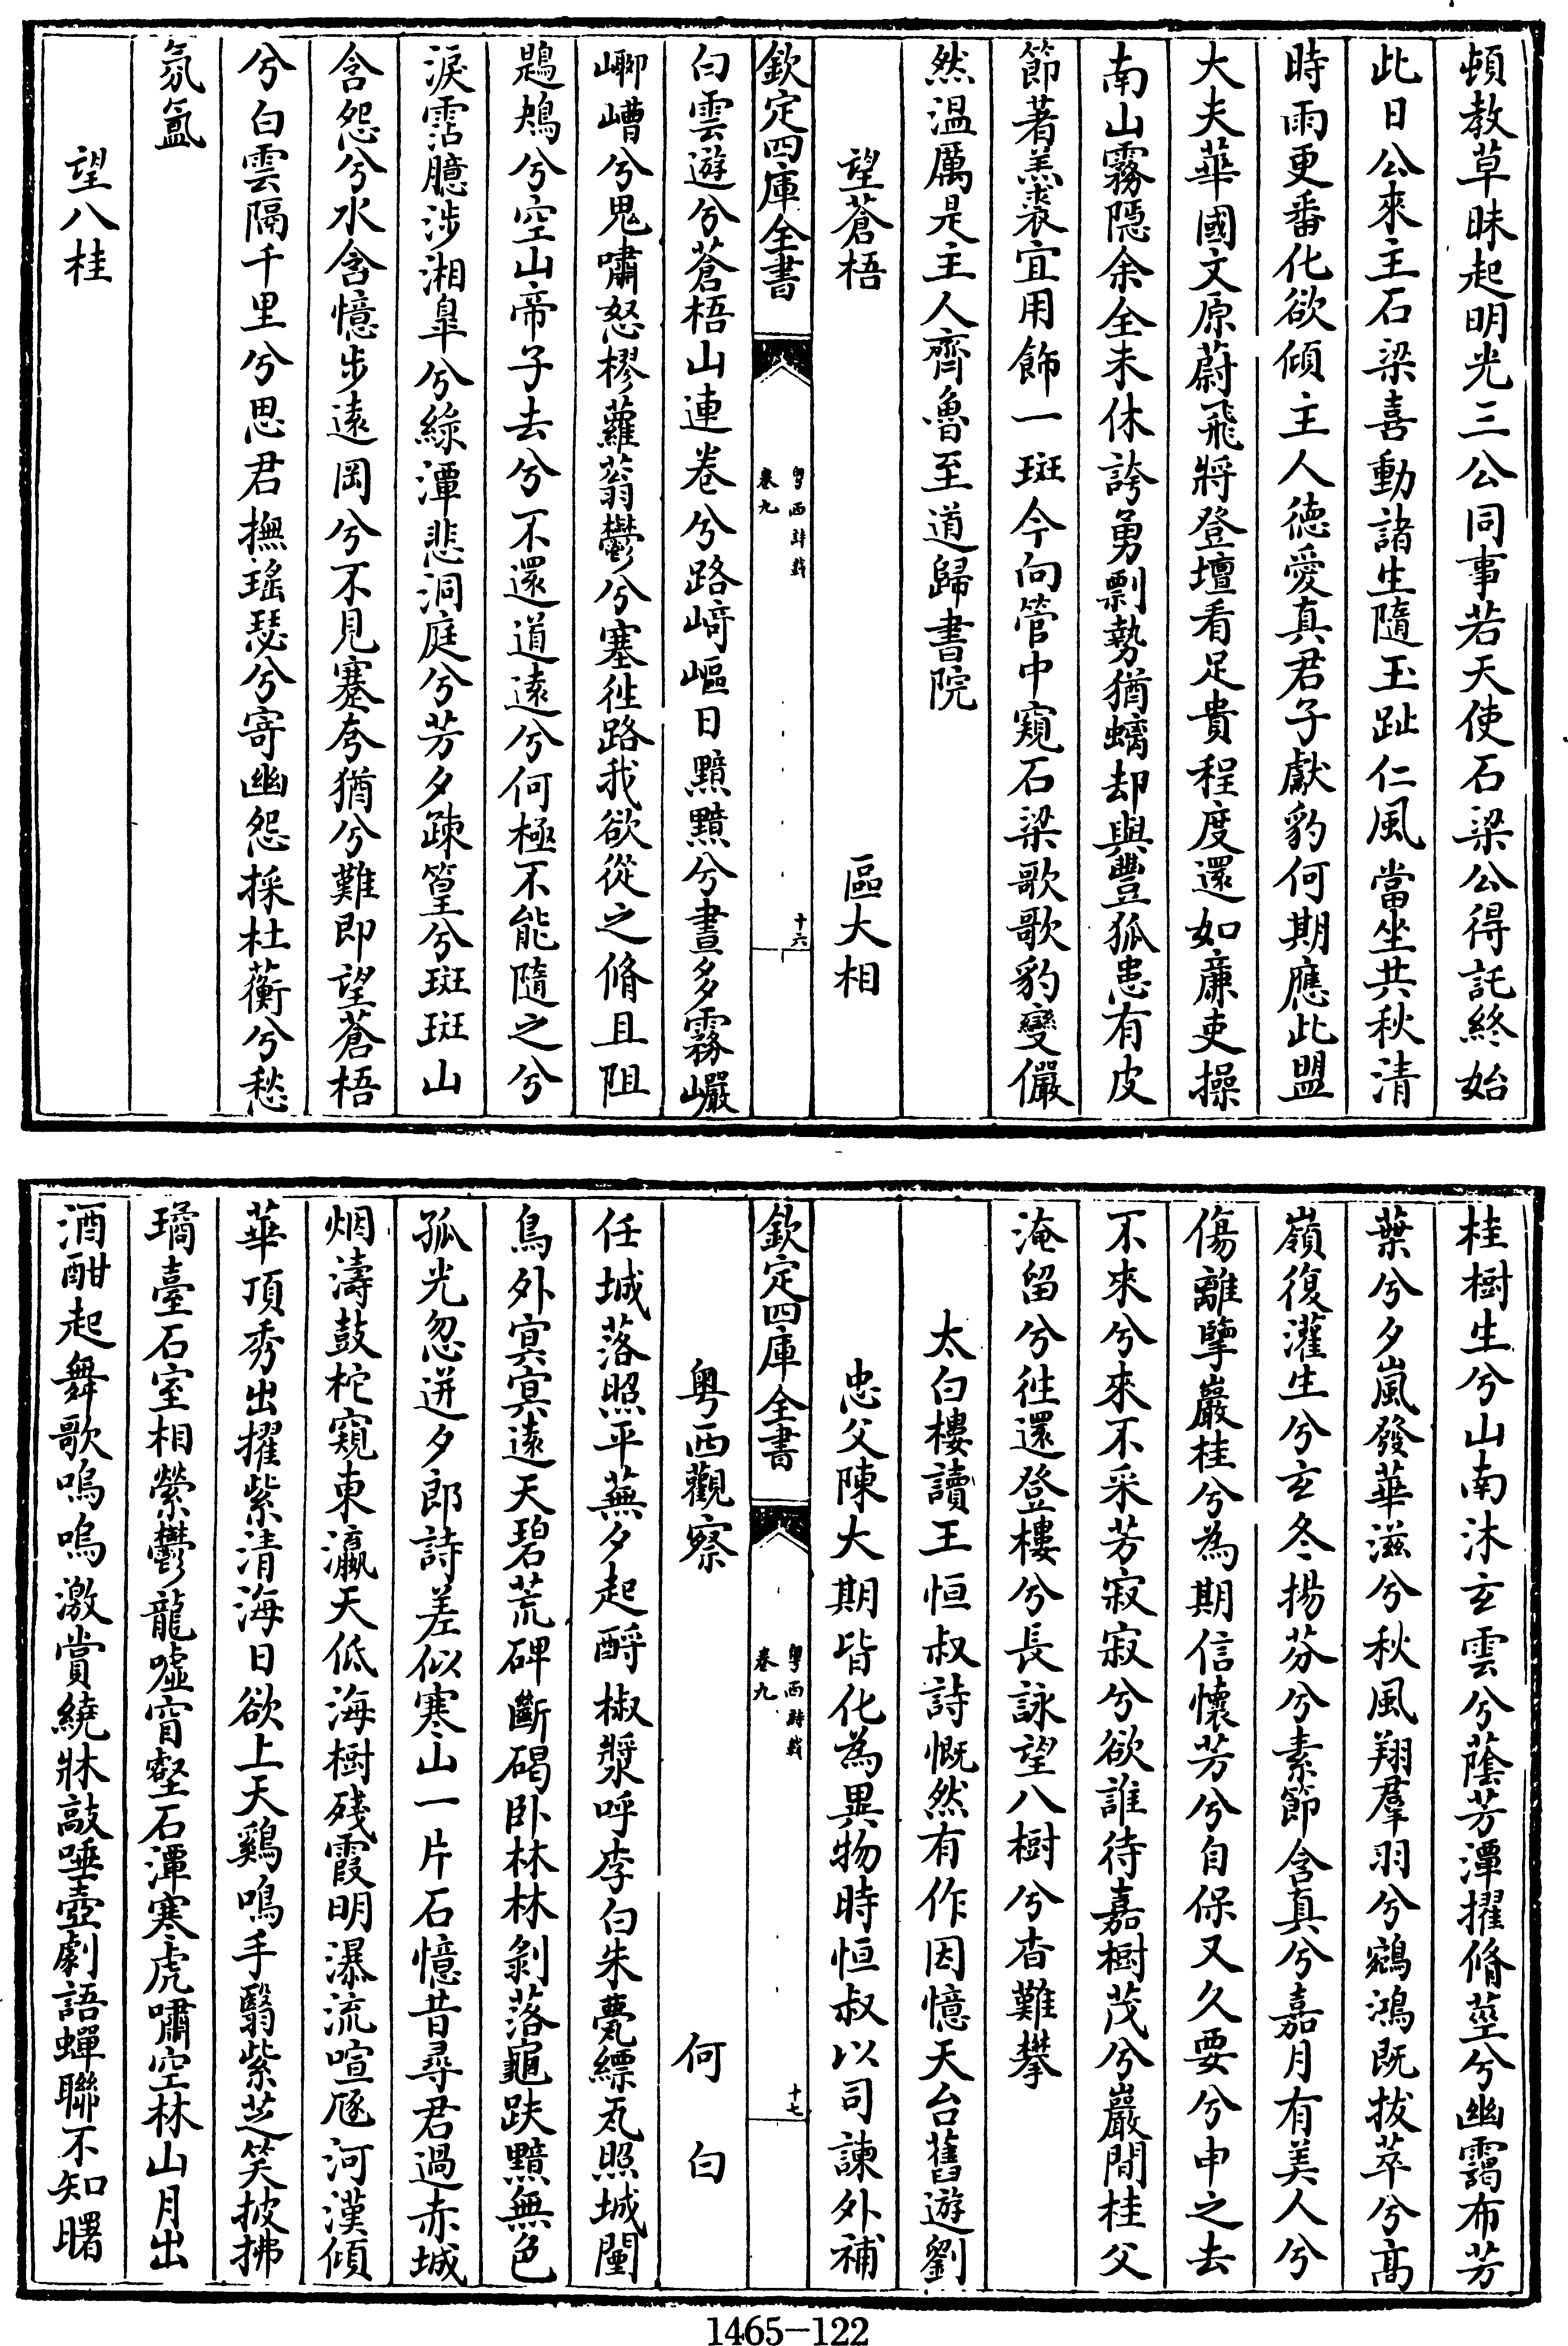 頓教草昧起明光三公同事若天使石梁公得託終始
此日公來主石梁喜動諸生隨玉趾仁風當坐共秋清
時雨更番化欲傾主人德愛真君子獻豹何期應此盟
大夫華國文原蔚飛將登壇看足貴程度還如亷吏操
南山霧隱余全未休誇勇剽勢猶螭却與豐狐患有皮
節著羔裘宜用飾一斑今向管中窺石梁歌歌豹變儼
然温厲是主人齊魯至道歸書院
望蒼梧 區大相
欽定四庫全書 粤西詩載 卷九 十六
白雲遊兮蒼梧山連巻兮路﨑嶇日黯黯兮晝多霧巗
嶚嶆兮鬼嘯怒樛蘿蓊鬱兮塞徃路我欲從之脩且阻
鶗鴂兮空山帝子去兮不還道逺兮何極不能隨之兮
淚霑臆涉湘臯兮綠潭悲洞庭兮芳夕疎篁兮斑斑山
含怨兮水含憶步逺岡兮不見蹇夸猶兮難即望蒼梧
兮白雲隔千里兮思君撫瑤瑟兮寄幽怨採杜蘅兮愁
氛氳
望八桂
桂樹生兮山南沐玄雲兮蔭芳潭擢脩莖兮幽靄布芳
葉兮夕嵐發華滋兮秋風翔羣羽兮鵷鴻既拔萃兮髙
嶺復灌生兮玄冬揚芬兮素節含真兮嘉月有美人兮
傷離擥巖桂兮為期信懷芳兮自保又久要兮申之去
不來兮來不采芳寂寂兮欲誰待嘉樹茂兮巖間桂父
淹留兮徃還登樓兮長詠望八樹兮杳難攀
太白樓讀王恒叔詩慨然有作因憶天台舊遊劉
忠父陳大期皆化為異物時恒叔以司諫外補
欽定四庫全書 粤西詩載 卷九 十七
粤西觀察 何白
任城落照平蕪夕起酹椒漿呼李白朱甍縹瓦照城闉
鳥外㝠㝠逺天碧荒碑斷碣卧林林剝落龜趺黯無色
孤光忽迸夕郎詩差似寒山一片石憶昔尋君過赤城
烟濤鼓柁窺東瀛天低海樹殘霞明瀑流喧豗河漢傾
華頂秀出擢紫清海日欲上天鷄鳴手翳紫芝笑披拂
璚臺石室相縈鬱龍嘘窅壑石潭寒虎嘯空林山月出
酒酣起舞歌嗚嗚激賞繞牀敲唾壺劇語蟬聯不知曙
1465-122